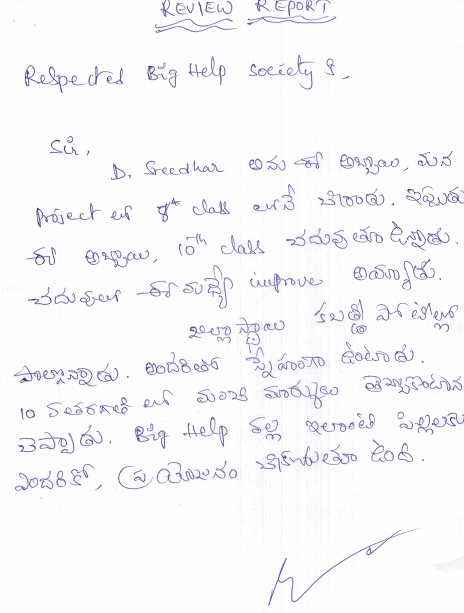 REVIEW REPORT
Respected Big Help Society కి,
Sir,
D. Sreedhar అను ఈ అబ్బాయి, మన
Project లో 8th class లోనే చేరాడు. ఇప్పుడు
ఈ అబ్బాయి, 10th class చదువుతూ ఉన్నాడు.
చదువులో ఈ మధ్యే improve అయ్యాడు.
జిల్లా స్థాయి కబడ్డీ పోటీల్లో
పాల్గొన్నాడు. అందరితో స్నేహంగా ఉంటాడు.
10 వ తరగతి లో మంచి మార్కులు తెచ్చుకొంటానని
చెప్పాడు. Big Help వల్ల ఇలాంటి పిల్లలకు
ఎందరికో, ప్రయోజనం చేకూరుతూ ఉంది.